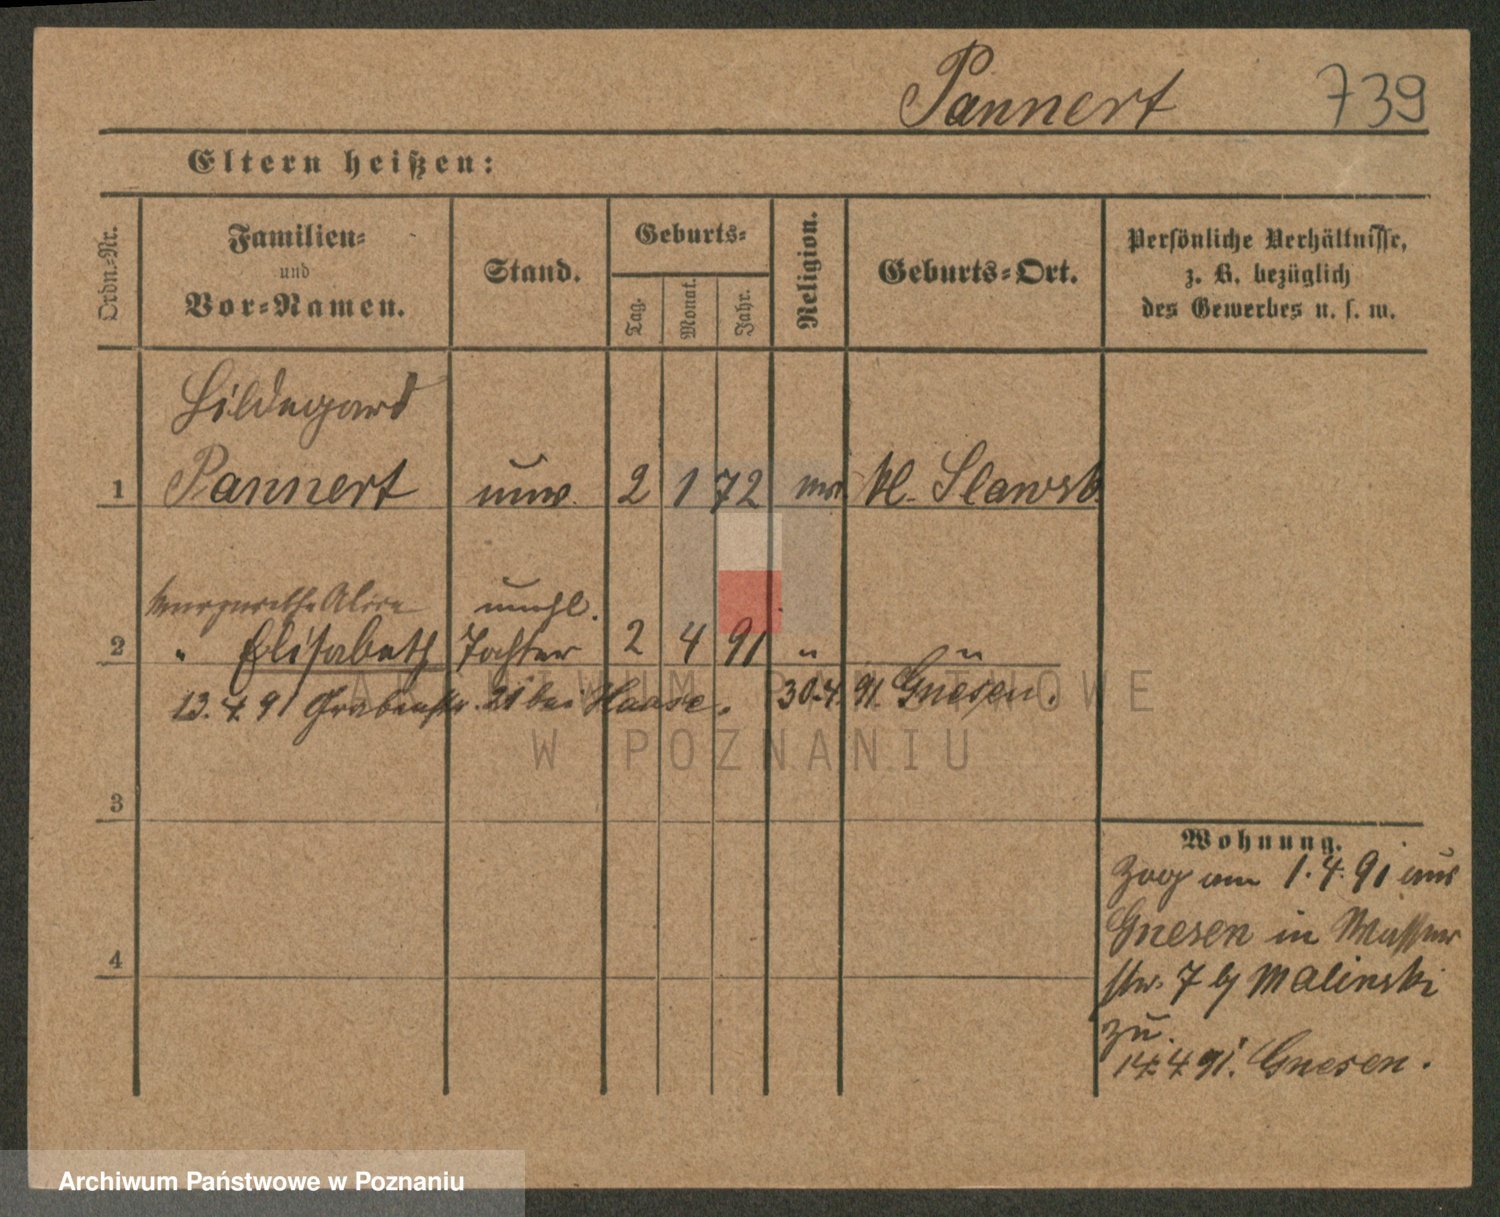 Pannert 739
Eltern heißen:
Ordn.-Nr.
Familien-
und
Vor-Namen.
Stand.
Geburts-
Tag.
Monat.
Jahr.
Religion.
Geburts-Ort.
Persönliche Verhältnisse,
z. B. bezüglich
des Gewerbes u. s. w.
Hildegard
1 Pannert unv. 2 1 72 Kl. Slawsk
Margarethe Alice unehl.
2 " Elisabeth Tochter 2 4 91 " "
13. 4. 91 Grabenstr. 21 bei Haase. 30. 4. 91. Gnesen.
3
4
Wohnung.
Zog am 1. 4. 91 aus
Gnesen in Wasser
str. 7 bj Malinski
zu.
14. 4. 91. Gnesen.
ARCHIWUM PAŃSTWOWE
W POZNANIU
Archiwum Państwowe w Poznaniu